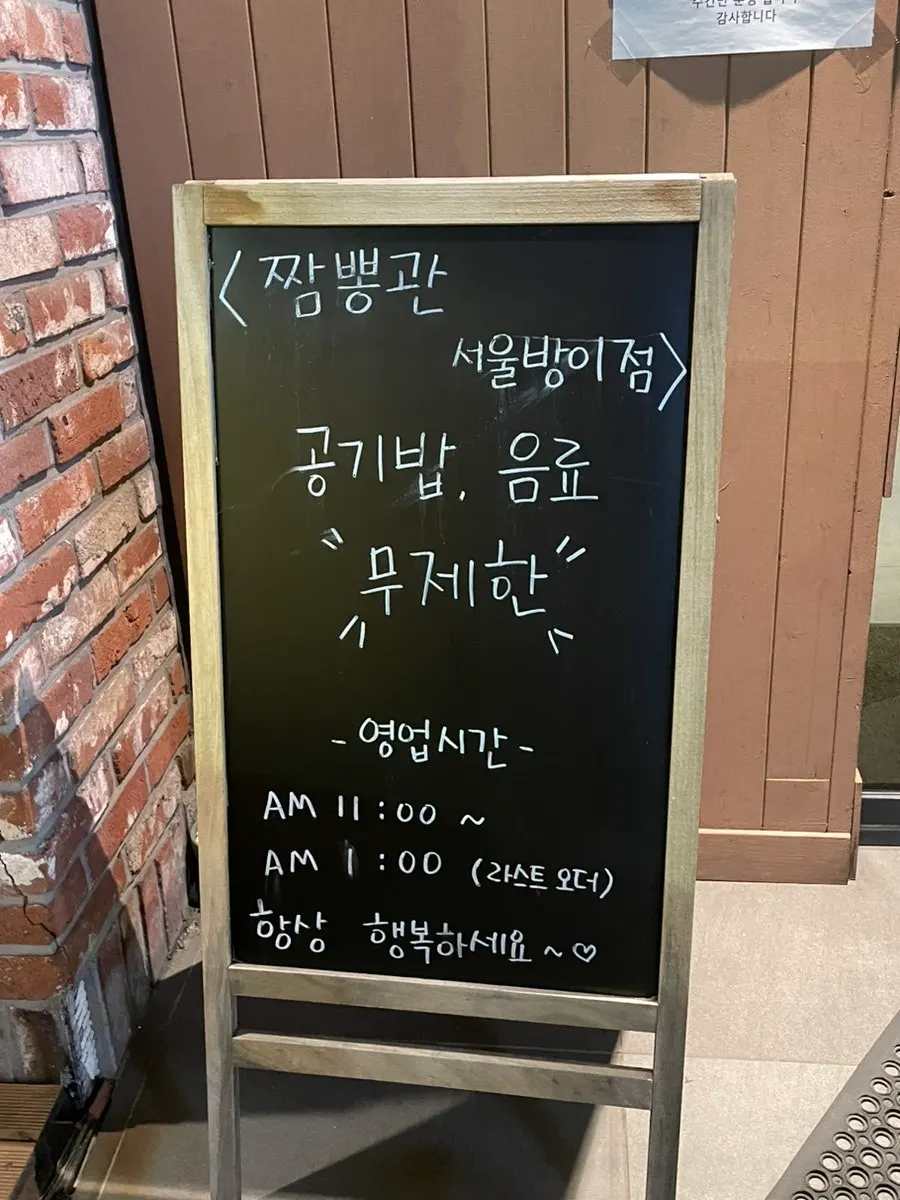 감사합니다
< 짬뽕관
서울방이점 >
공기밥, 음료
무제한
- 영업시간 -
AM 11:00 ~
AM 1:00 (라스트 오더)
항상 행복하세요 ~ ♡